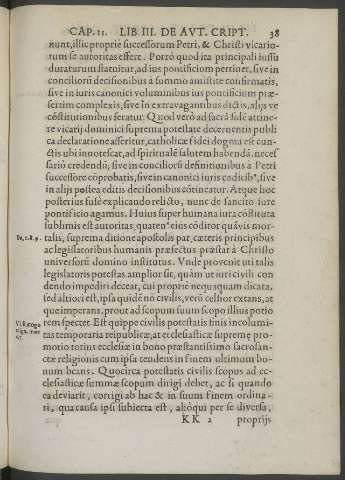 CAP. 11. LIB. III. DE AVT. CRIPT. 38
nunt, illic propriè successorum Petri, & Christi vicario-
rum se autoritas effert. Porrò quod ita principali iussu
duraturum statuitur, ad ius pontificium pertinet, siue in
conciliorū decisionibus a summo antistite confirmatis,
siue in iuris canonici voluminibus ius pontificium præ-
sertim complexis, siue in extrauagantibus dictis, alijs ve
cōstitutionibus feratur. Quod verò ad sacrā fidē attine-
re vicarij dominici suprema potestate decernentis publi
ca declaratione asseritur, catholicæ fidei dogma est cun-
ctis vbi innotescat, ad spiritualē salutem habendā, necess
sariò credendū; siue in conciliorū definitionibus à Petri
successore cōprobatis, siue in canonici iuris codicibꝰ, siue
in alijs postea editis decisionibus cōtineatur. Atque hoc
posterius fusè explicando relicto, nunc de sancito iure
pontificio agamus. Huius super humana iura cōstituta
sublimis est autoritas, quatenꝰ eius cōditor quāuis mor-
talis, suprema ditione apostolis par, cæteris principibus
ac legislatoribus humanis præfectus præstat à Christo
vniuersorū domino institutus. Vnde prouenit vti talis
legislatoris potestas amplior sit, quàm vt iuri ciuili con
dendo impediri deceat, cui propriè nequsquam dicata,
sed altiori est, ipsa quidē nō ciuilis, verū celsior extans, at
que imperans, prout ad scopum suum scopo illius potio
rem spectet. Est quippe ciuilis potestatis finis incolumi-
tas temporaria reipublicæ, at ecclesiasticæ supremę pro-
motio totius ecclesiæ in bono præstantissimo sacrosan-
ctæ religionis cum ipsa tendens in finem vltimum bo-
num beans. Quocirca potestatis ciuilis scopus ad ec-
clesiasticæ summæ scopum dirigi debet, ac si quando
ea deuiarit, corrigi ab hac & in suum finem ordina-
ri, qua causa ipsi subiecta est, alioqui per se diuersa,
KK 2 proprijs